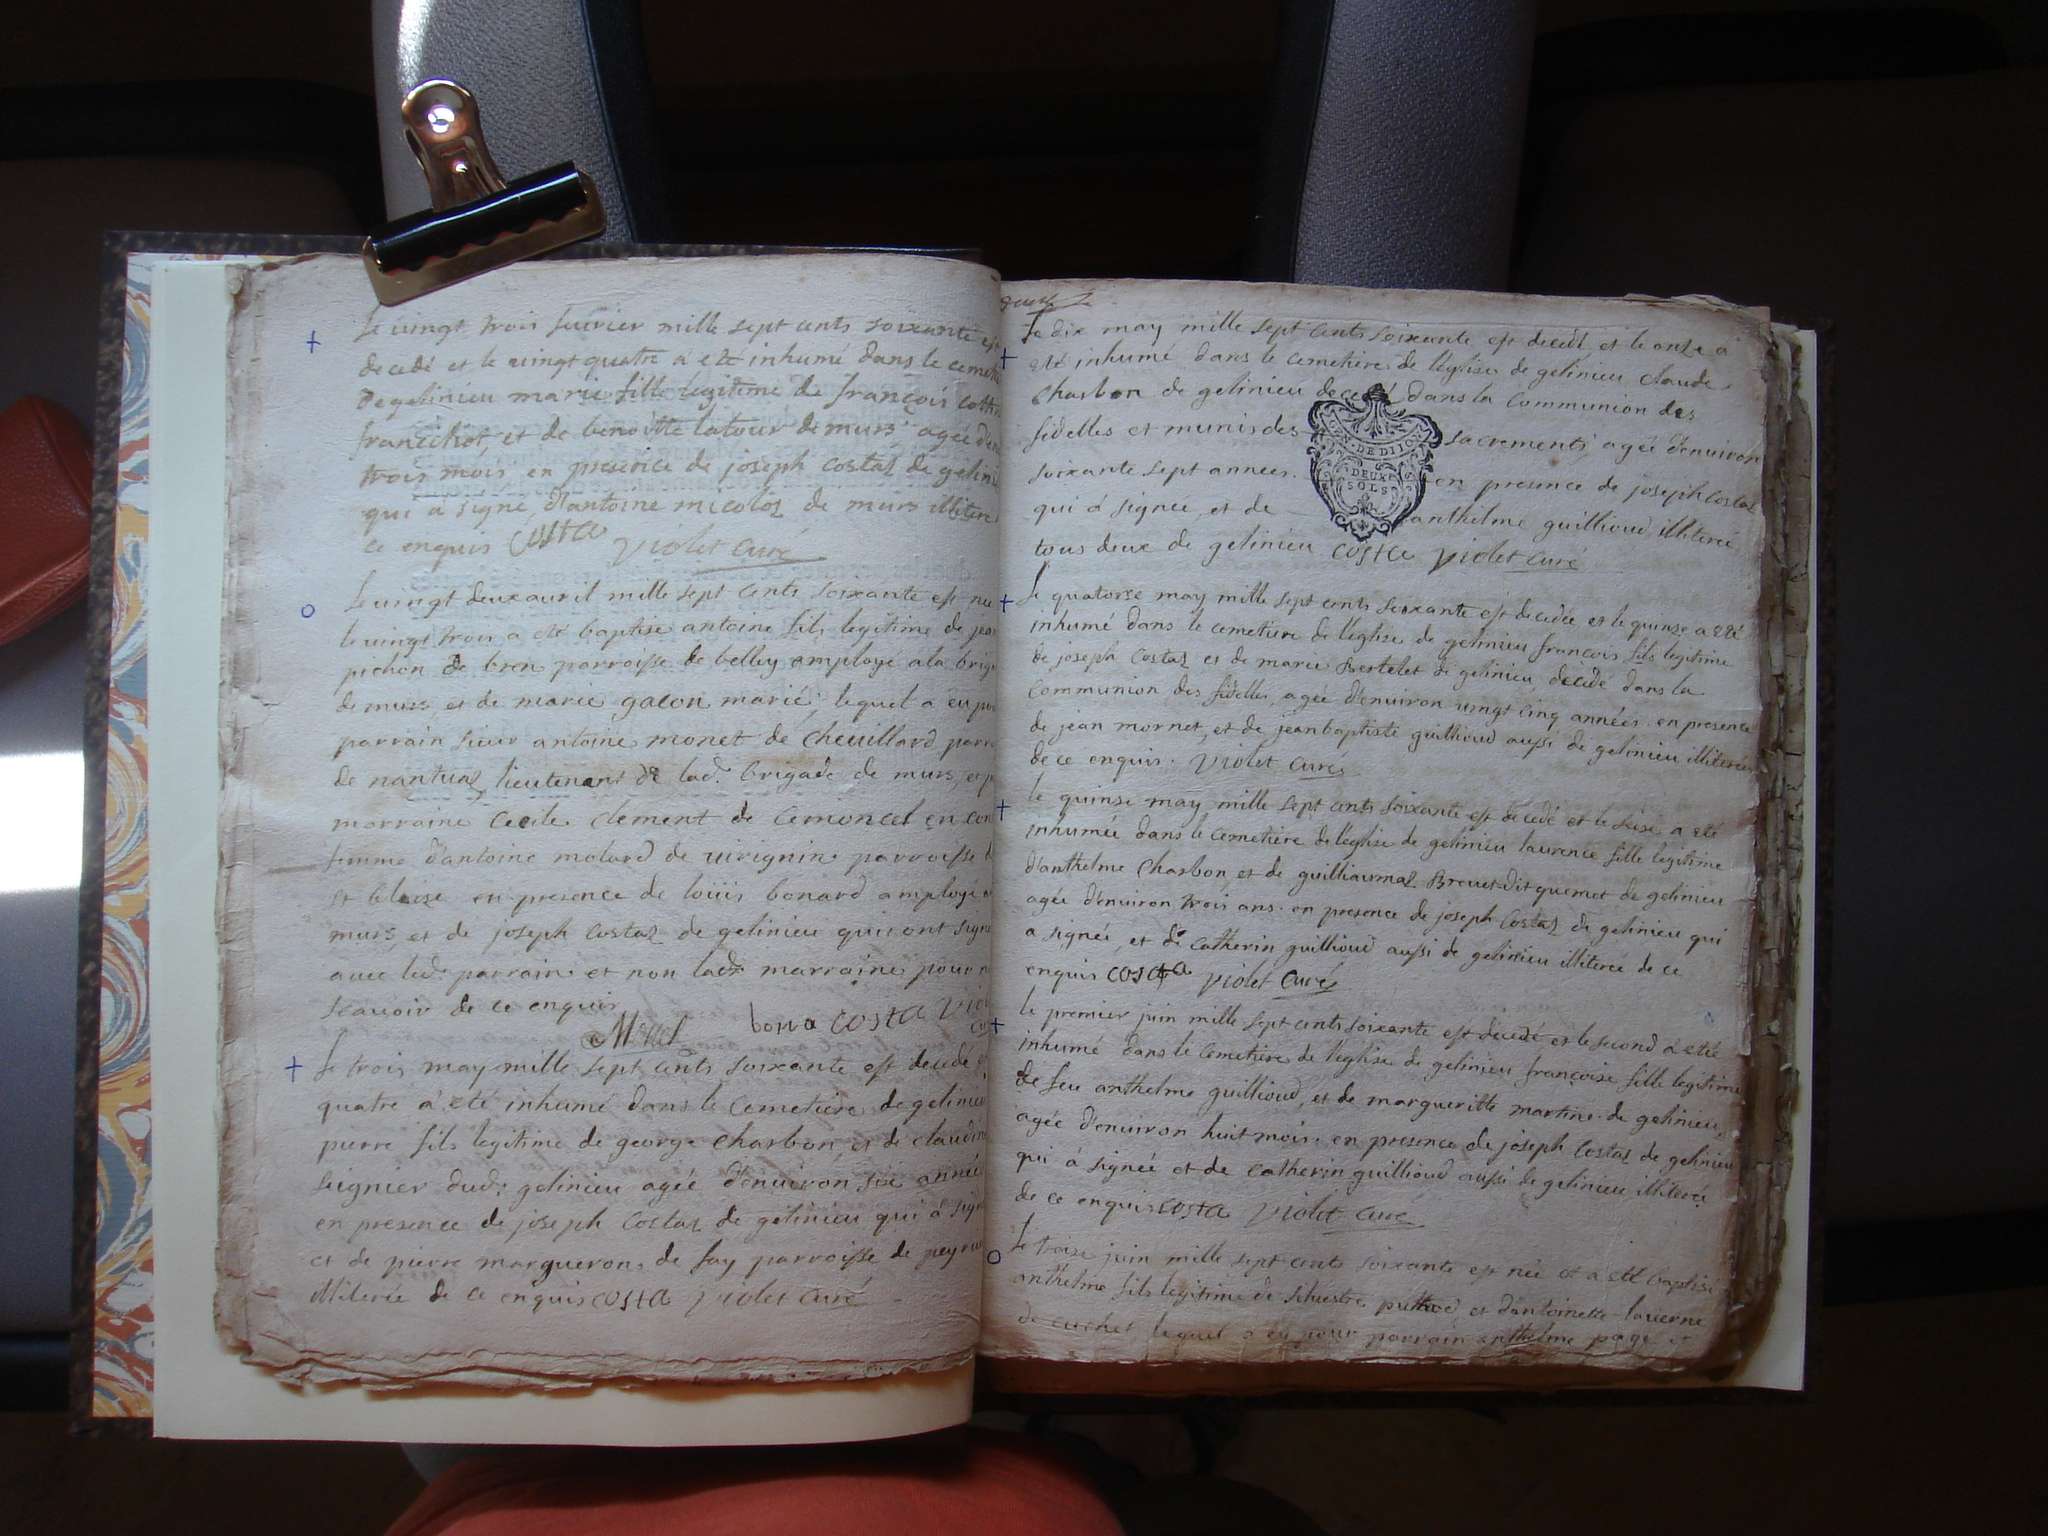 le vingt trois fevrier mille sept cents soixante est
decedé et le vingt quatre a eté inhumé dans le cemeti
de gelinieu marie fille legitime de françois
franchet, et de benoitte latour de murs, agée d'en
trois mois en presence de joseph costaz de gelini
qui a signé, d'antoine nicolos de murs illitere
ce enquis Costa violet curé
le vingt deux auril mille sept cents soixante est ne
le vingt trois a eté baptisé antoine fils legitime de jea
pichon de bren parroisse de belley employé a la brig
de murs, et de marie gacon mariés, lequel a eu po
parrain sieur antoine monet de chevillard parr
de nantuaz lieutenant de lad. brigade de murs, et p
marraine cecile clement de cemoncel en com
femme d'antoine molard de virignin parroisse d
st blaise en presence de louis bonard employé a
murs, et de joseph costaz de gelinieu qui ont signé
avec led. parrain et non lad. marraine pour n
scavoir de ce enquis
Monet bona costa viol
cu
le trois may mille sept cents soixante est decedé e
quatre a eté inhumé dans le cemetiere de gelinieu
pierre fils legitime de george charbon et de claudin
seignier dud. gelinieu agée d'enuiron six année
en presence de joseph costaz de gelinieu qui a sign
et de pierre margueron de fay parroisse de peyrieu
illiterée de ce enquis costa violet curé
le dix may mille sept cents soixante est decedé et le onze a
eté inhumé dans le cemetiere de l'eglise de gelinieu claude
charbon de gelinieu decedé dans la communion des
fidelles et munis des sacrements agée d'enuiron
GEN. DE DIJON
DEUX
SOLS
soixante sept années en presence de joseph costaz
qui a signée, et de anthelme guillioud illiteré
tous deux de gelinieu costa violet curé
le quatorse may mille sept cents soixante est decedée et le quinse a eté
inhumé dans le cemetiere de l'eglise de gelinieu françois fils legitime
de joseph costaz et de marie Bertelet de gelinieu, decedé dans la
communion des fidelles, agée d'enuiron vingt cinq années en presence
de jean mornet, et de jean baptiste guillioud aussi de gelinieu illiterés
de ce enquis. violet curé
le quinse may mille sept cents soixante est decedé et le seise a eté
inhumée dans le cemetiere de l'eglise de gelinieu laurence fille legitime
d'anthelme charbon et de guilliaumaz Brevet dit quemet de gelinieu
agée d'enuiron trois ans. en presence de joseph costaz de gelinieu qui
a signée, et de catherin guillioud aussi de gelinieu illiteré de ce
enquis costa violet curé
le premier juin mille sept cents soixante est decedé et le second a eté
inhumé dans le cemetiere de l'eglise de gelinieu françoise fille legitime
de feu anthelme guillioud, et de margueritte martine de gelinieu,
agée d'enuiron huit mois. en presence de joseph costaz de gelinieu
qui a signée et de catherin guillioud aussi de gelinieu illiteré
de ce enquis costa violet curé
le treise juin mille sept cents soixante est née et a eté baptisé
anthelme fils legitime de siluestre puthod et d'antoinette lauerne
de cuchet lequel a eu pour parrain anthelme page et